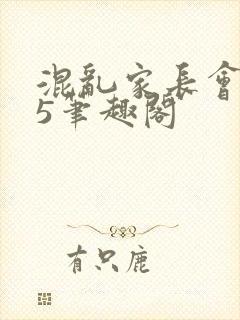 混亂家長會
5筆趣閣
有只鹿